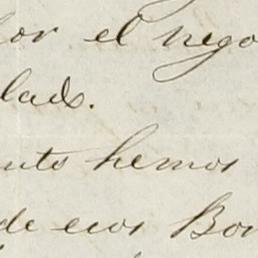 por el nego
lado.
nto hemos
de esos Bon